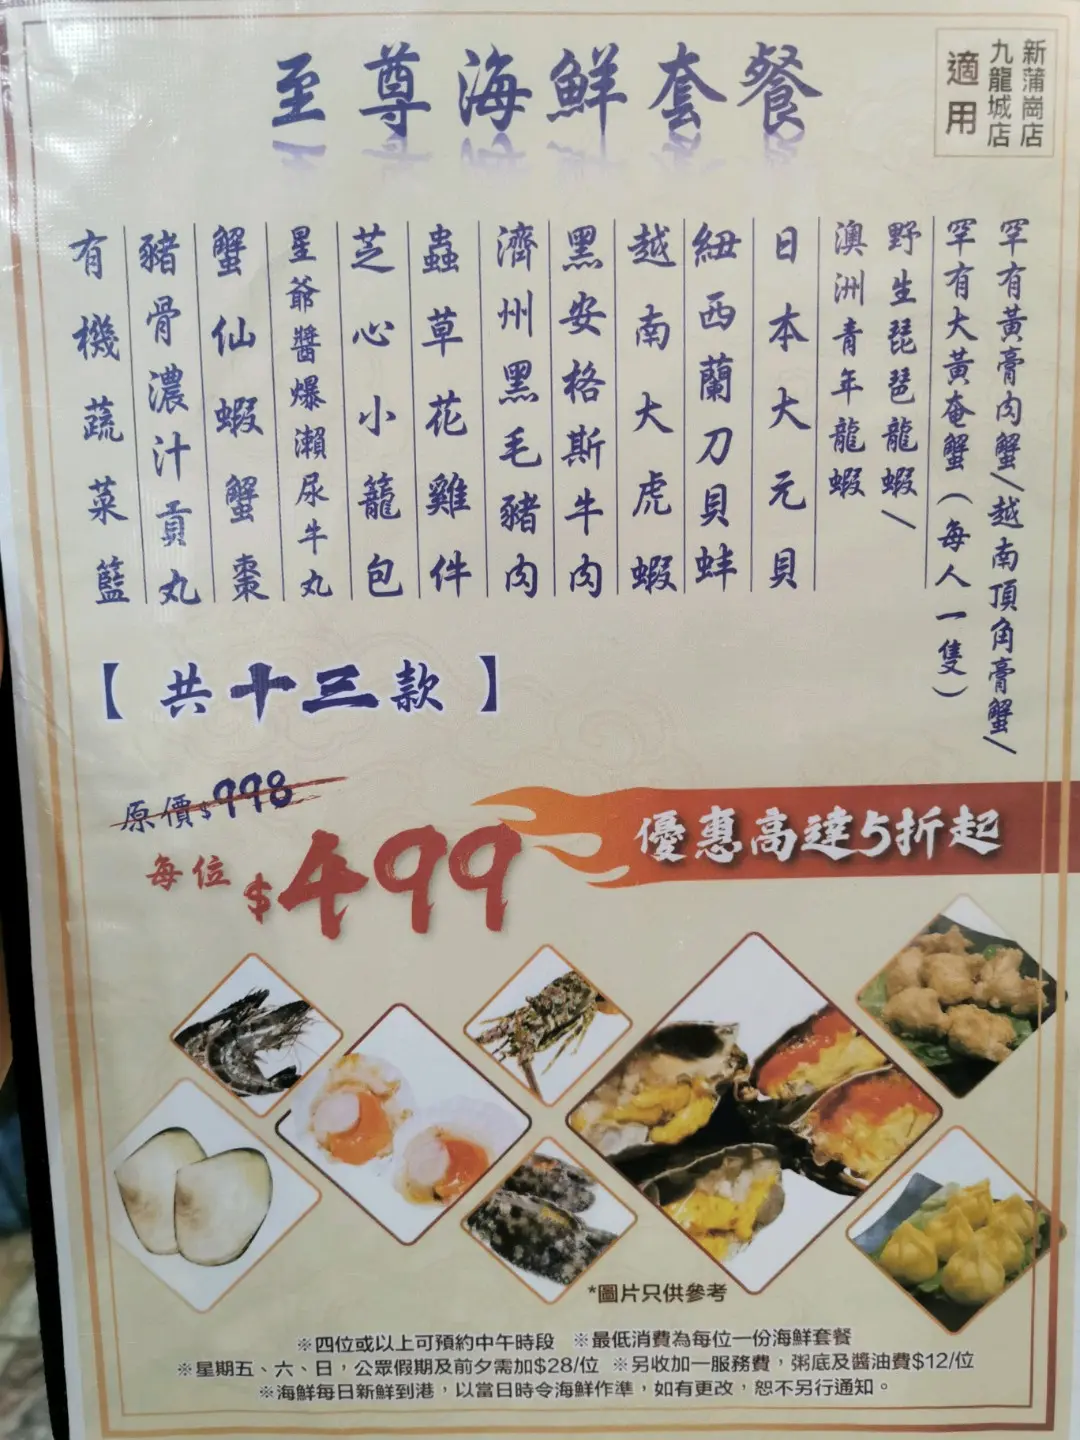 至尊海鮮套餐
新蒲崗店
九龍城店
適用
罕有黃膏肉蟹/越南頂角膏蟹/
罕有大黃奄蟹(每人一隻)
野生琵琶龍蝦/
澳洲青年龍蝦
日本大元貝
紐西蘭刀貝蚌
越南大虎蝦
黑安格斯牛肉
濟州黑毛豬肉
蟲草花雞件
芝心小籠包
星爺醬爆瀨尿牛丸
蟹仙蝦蟹棗
豬骨濃汁貢丸
有機蔬菜籃
【共十三款】
原價$998
每位$499
優惠高達5折起
*圖片只供參考
※四位或以上可預約中午時段 ※最低消費為每位一份海鮮套餐
※星期五、六、日,公眾假期及前夕需加$28/位 ※另收加一服務費,粥底及醬油費$12/位
※海鮮每日新鮮到港,以當日時令海鮮作準,如有更改,恕不另行通知。